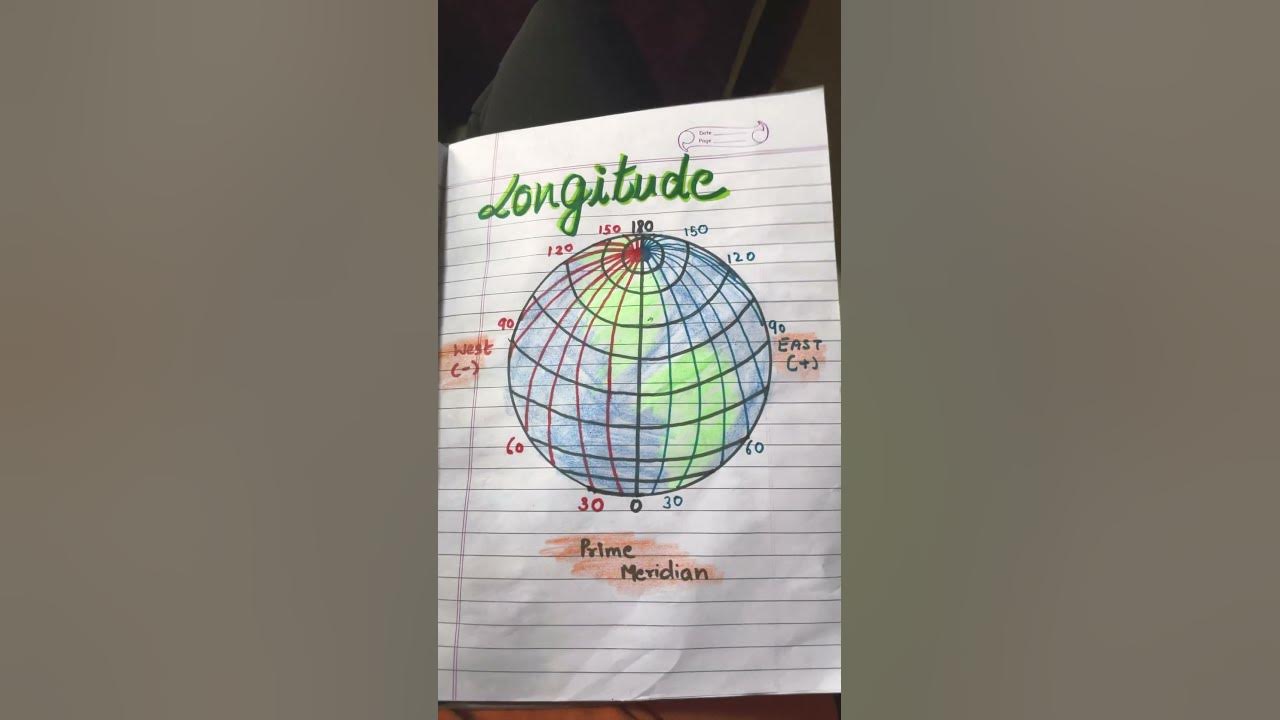 Date
Page
Longitude
150 180 150
120 120
90 90
West EAST
(-) (+)
60 60
30 0 30
Prime
Meridian